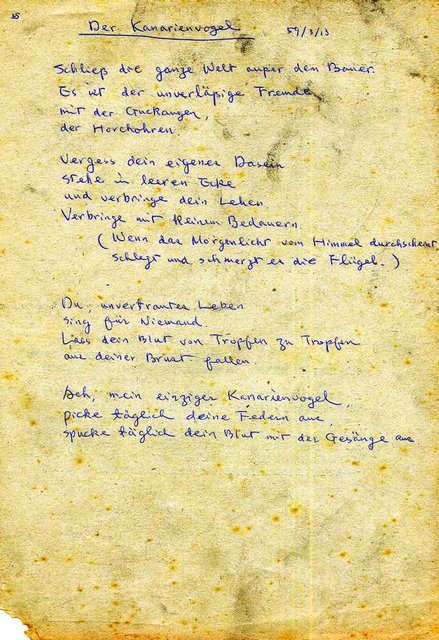 25
Der Kanarienvogel 59/3/13
Schließ die ganze Welt außer den Bauer.
Es ist der unverläßige Fremde
mit der Guckaugen,
der Horchohren.
Vergess dein eigener Dasein
stehe in leeren Ecke
und verbringe dein Leben
Verbringe mit Keinem Bedauern.
(Wenn das Morgenlicht vom Himmel durchscheint
schlegt und schmerzt er die Flügel.)
Du, unvertrautes Leben
sing für Niemand.
Lass dein Blut von Tropfen zu Tropfen
aus deiner Brust fallen
Ach, mein einziger Kanarienvogel,
picke täglich deine Federn aus,
spucke täglich dein Blut mit der Gesänge aus